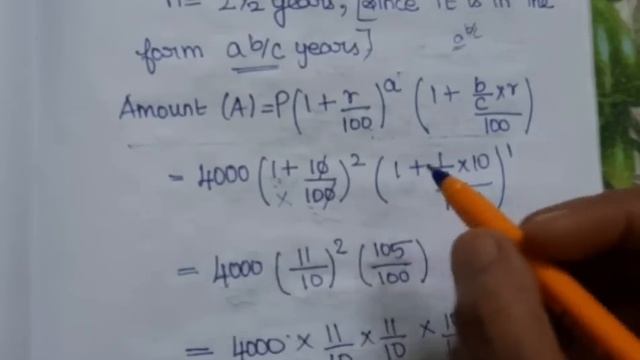 n= 2½ years, [since it is in the
form ab/c years]
a b/c
Amount (A) = P(1 + r/100)^a (1 + b/c × r/100)
= 4000 (1 + 10/100)^2 (1 + 1/ × 10/)^1
×
= 4000 (11/10)^2 (105/100)
= 4000 × 11/10 × 11/10 ×